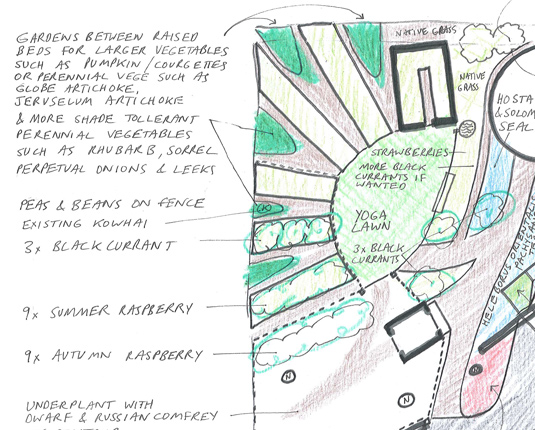 GARDENS BETWEEN RAISED
BEDS FOR LARGER VEGETABLES
SUCH AS PUMPKIN/COURGETTES
OR PERENNIAL VEGE SUCH AS
GLOBE ARTICHOKE,
JERUSELUM ARTICHOKE
& MORE SHADE TOLLERANT
PERENNIAL VEGETABLES
SUCH AS RHUBARB, SORREL
PERPETUAL ONIONS & LEEKS
PEAS & BEANS ON FENCE
EXISTING KOWHAI
3x BLACKCURRANT
9x SUMMER RASPBERRY
9x AUTUMN RASPBERRY
UNDERPLANT WITH
DWARF & RUSSIAN COMFREY
NATIVE GRASS
NATIVE
GRASS
HOSTA
& SOLOM
SEAL
STRAWBERRIES
MORE BLACK
CURRANTS IF
WANTED
YOGA
LAWN
3x BLACK
CURRANTS
HELLEBORUS ORIENTAL
PACHYSAN
N
N